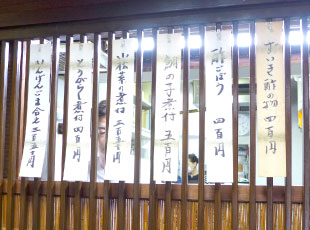 ずいき酢の物 四百円
酢ごぼう 四百円
鯛の子煮付 五百円
小松菜の煮付 三百五十円
とうがらし煮付 四百円
いんげんごま合え 三百五十円